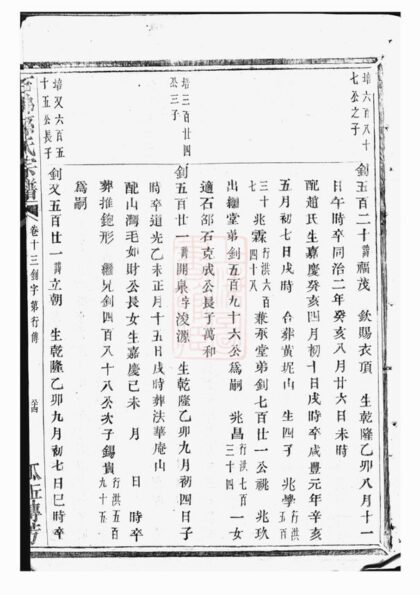 培六百八十
七公之子
釗五百二十諱福茂 欽賜衣頂 生乾隆乙卯八月十一
日午時卒同治二年癸亥八月廿六日未時
配趙氏生嘉慶癸亥四月初十日戌時卒咸豐元年辛亥
五月初七日戌時 合葬黃坭山 生四子 兆學行洪五百
三十兆霖行洪六百四十八兼承堂弟釗七百廿一公祧 兆玖
出繼堂弟釗五百九十六公為嗣 兆昌行洪七百三十四一女
適石郃石克成公長子萬和
培三百廿四
公三子
釗五百廿一諱開泉字浚源 生乾隆乙卯九月初四日子
時卒道光乙未正月十五日戌時葬法華庵山
配山灣毛如財公長女生嘉慶己未 月 日 時卒
葬推鉋形 繼兄釗四百八十八公次子錫貴行洪五百九十五
為嗣
培又六百五
十五公長子
釗又五百廿一諱立朝 生乾隆乙卯九月初七日巳時卒
氏宗譜
卷十三釗字第行傳